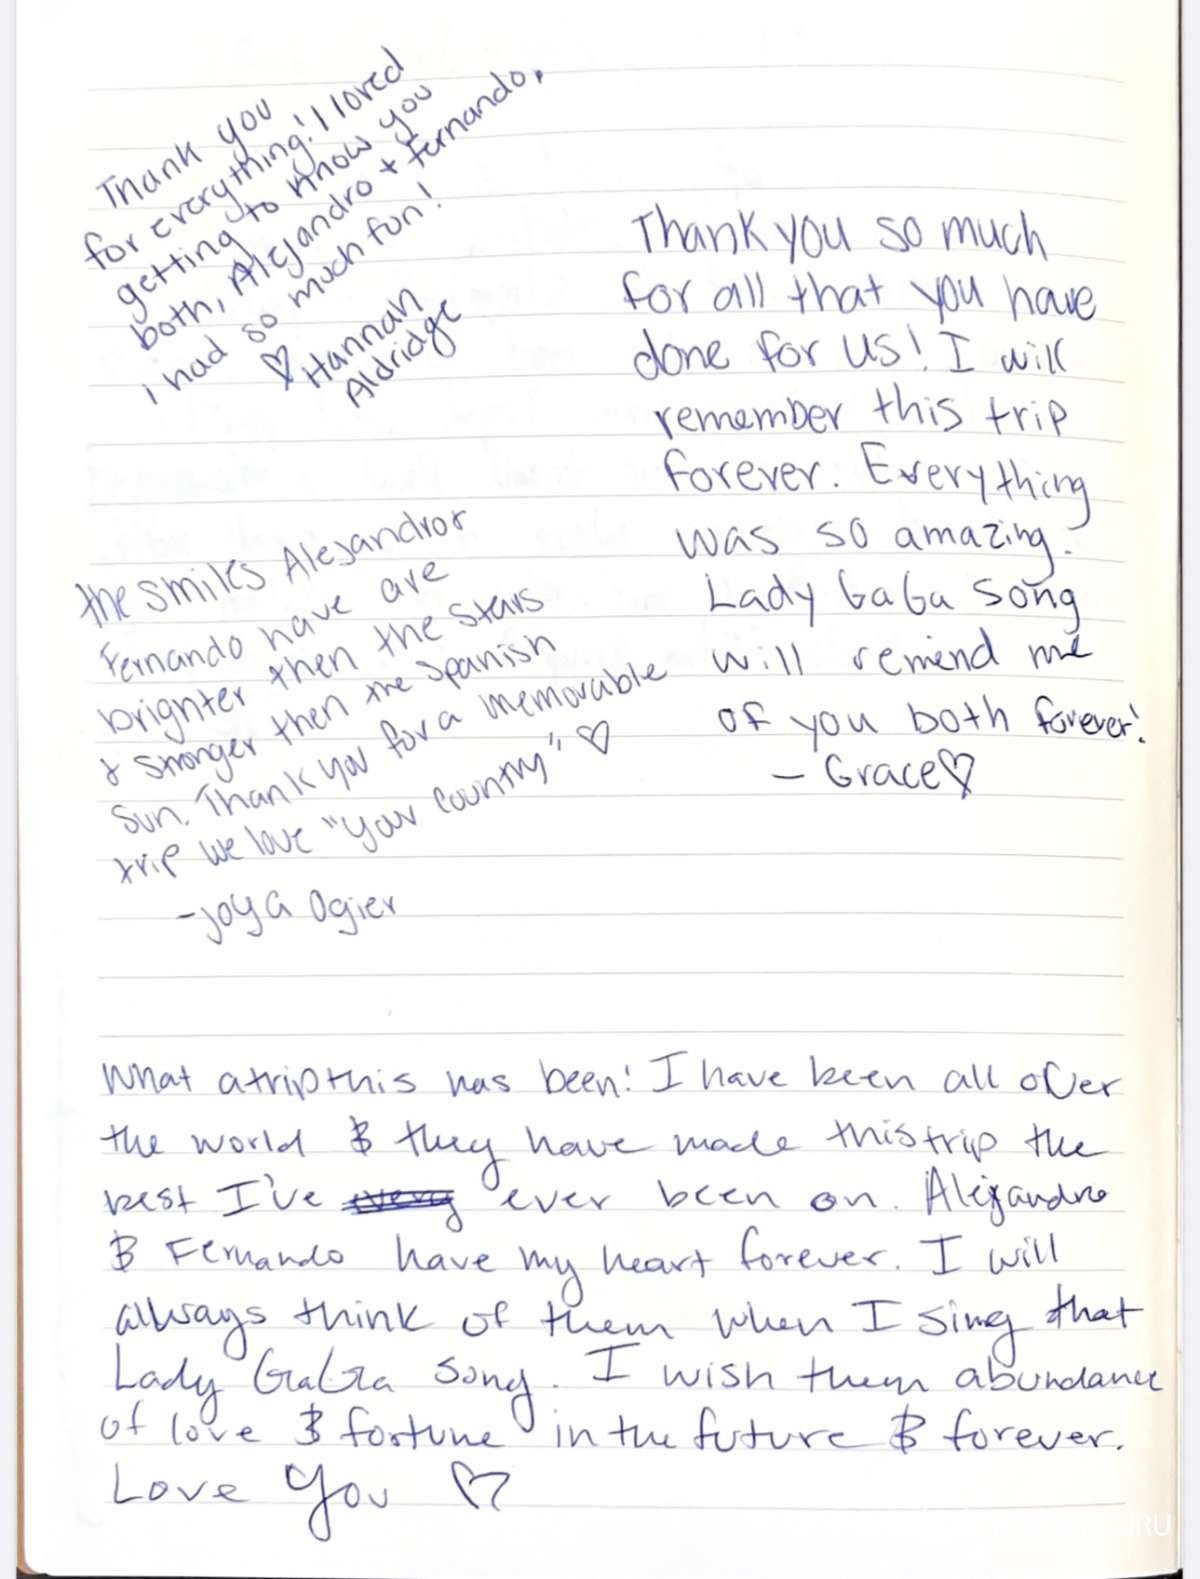 Thank you
for everything! I loved
getting to know you
both, Alejandro + Fernando.
I had so much fun!
♡ Hannah
Aldridge
Thank you so much
for all that you have
done for us! I will
remember this trip
forever. Everything
was so amazing.
Lady GaGa song
will remind me
of you both forever!
- Grace♡
the smiles Alejandro &
Fernando have are
brighter then the stars
& stronger then the Spanish
Sun. Thank you for a memorable
trip we love "your country" ♡
-Joya Ogier
What a trip this has been! I have been all over
the world & they have made this trip the
best I've every ever been on. Alejandro
& Fernando have my heart forever. I will
always think of them when I sing that
Lady GaGa song. I wish them abundance
of love & fortune in the future & forever.
Love You ♡